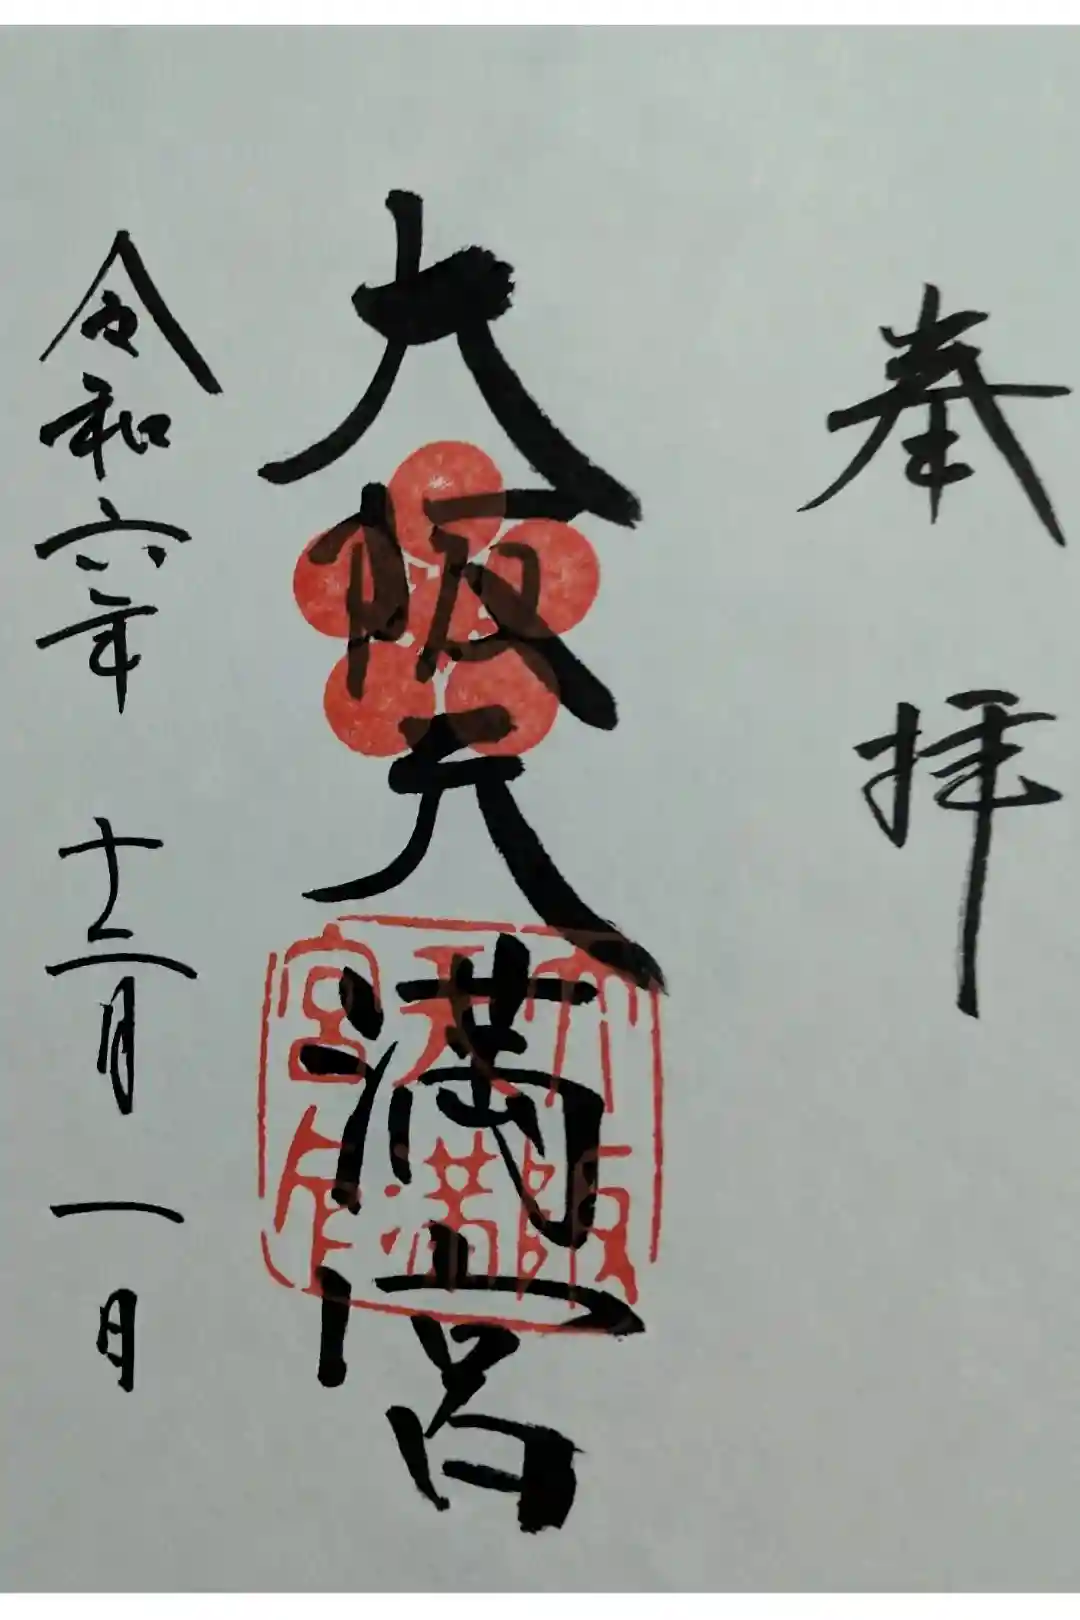 奉拝
大阪天満宮
大阪
天満
宮印
令和六年 十二月 一日